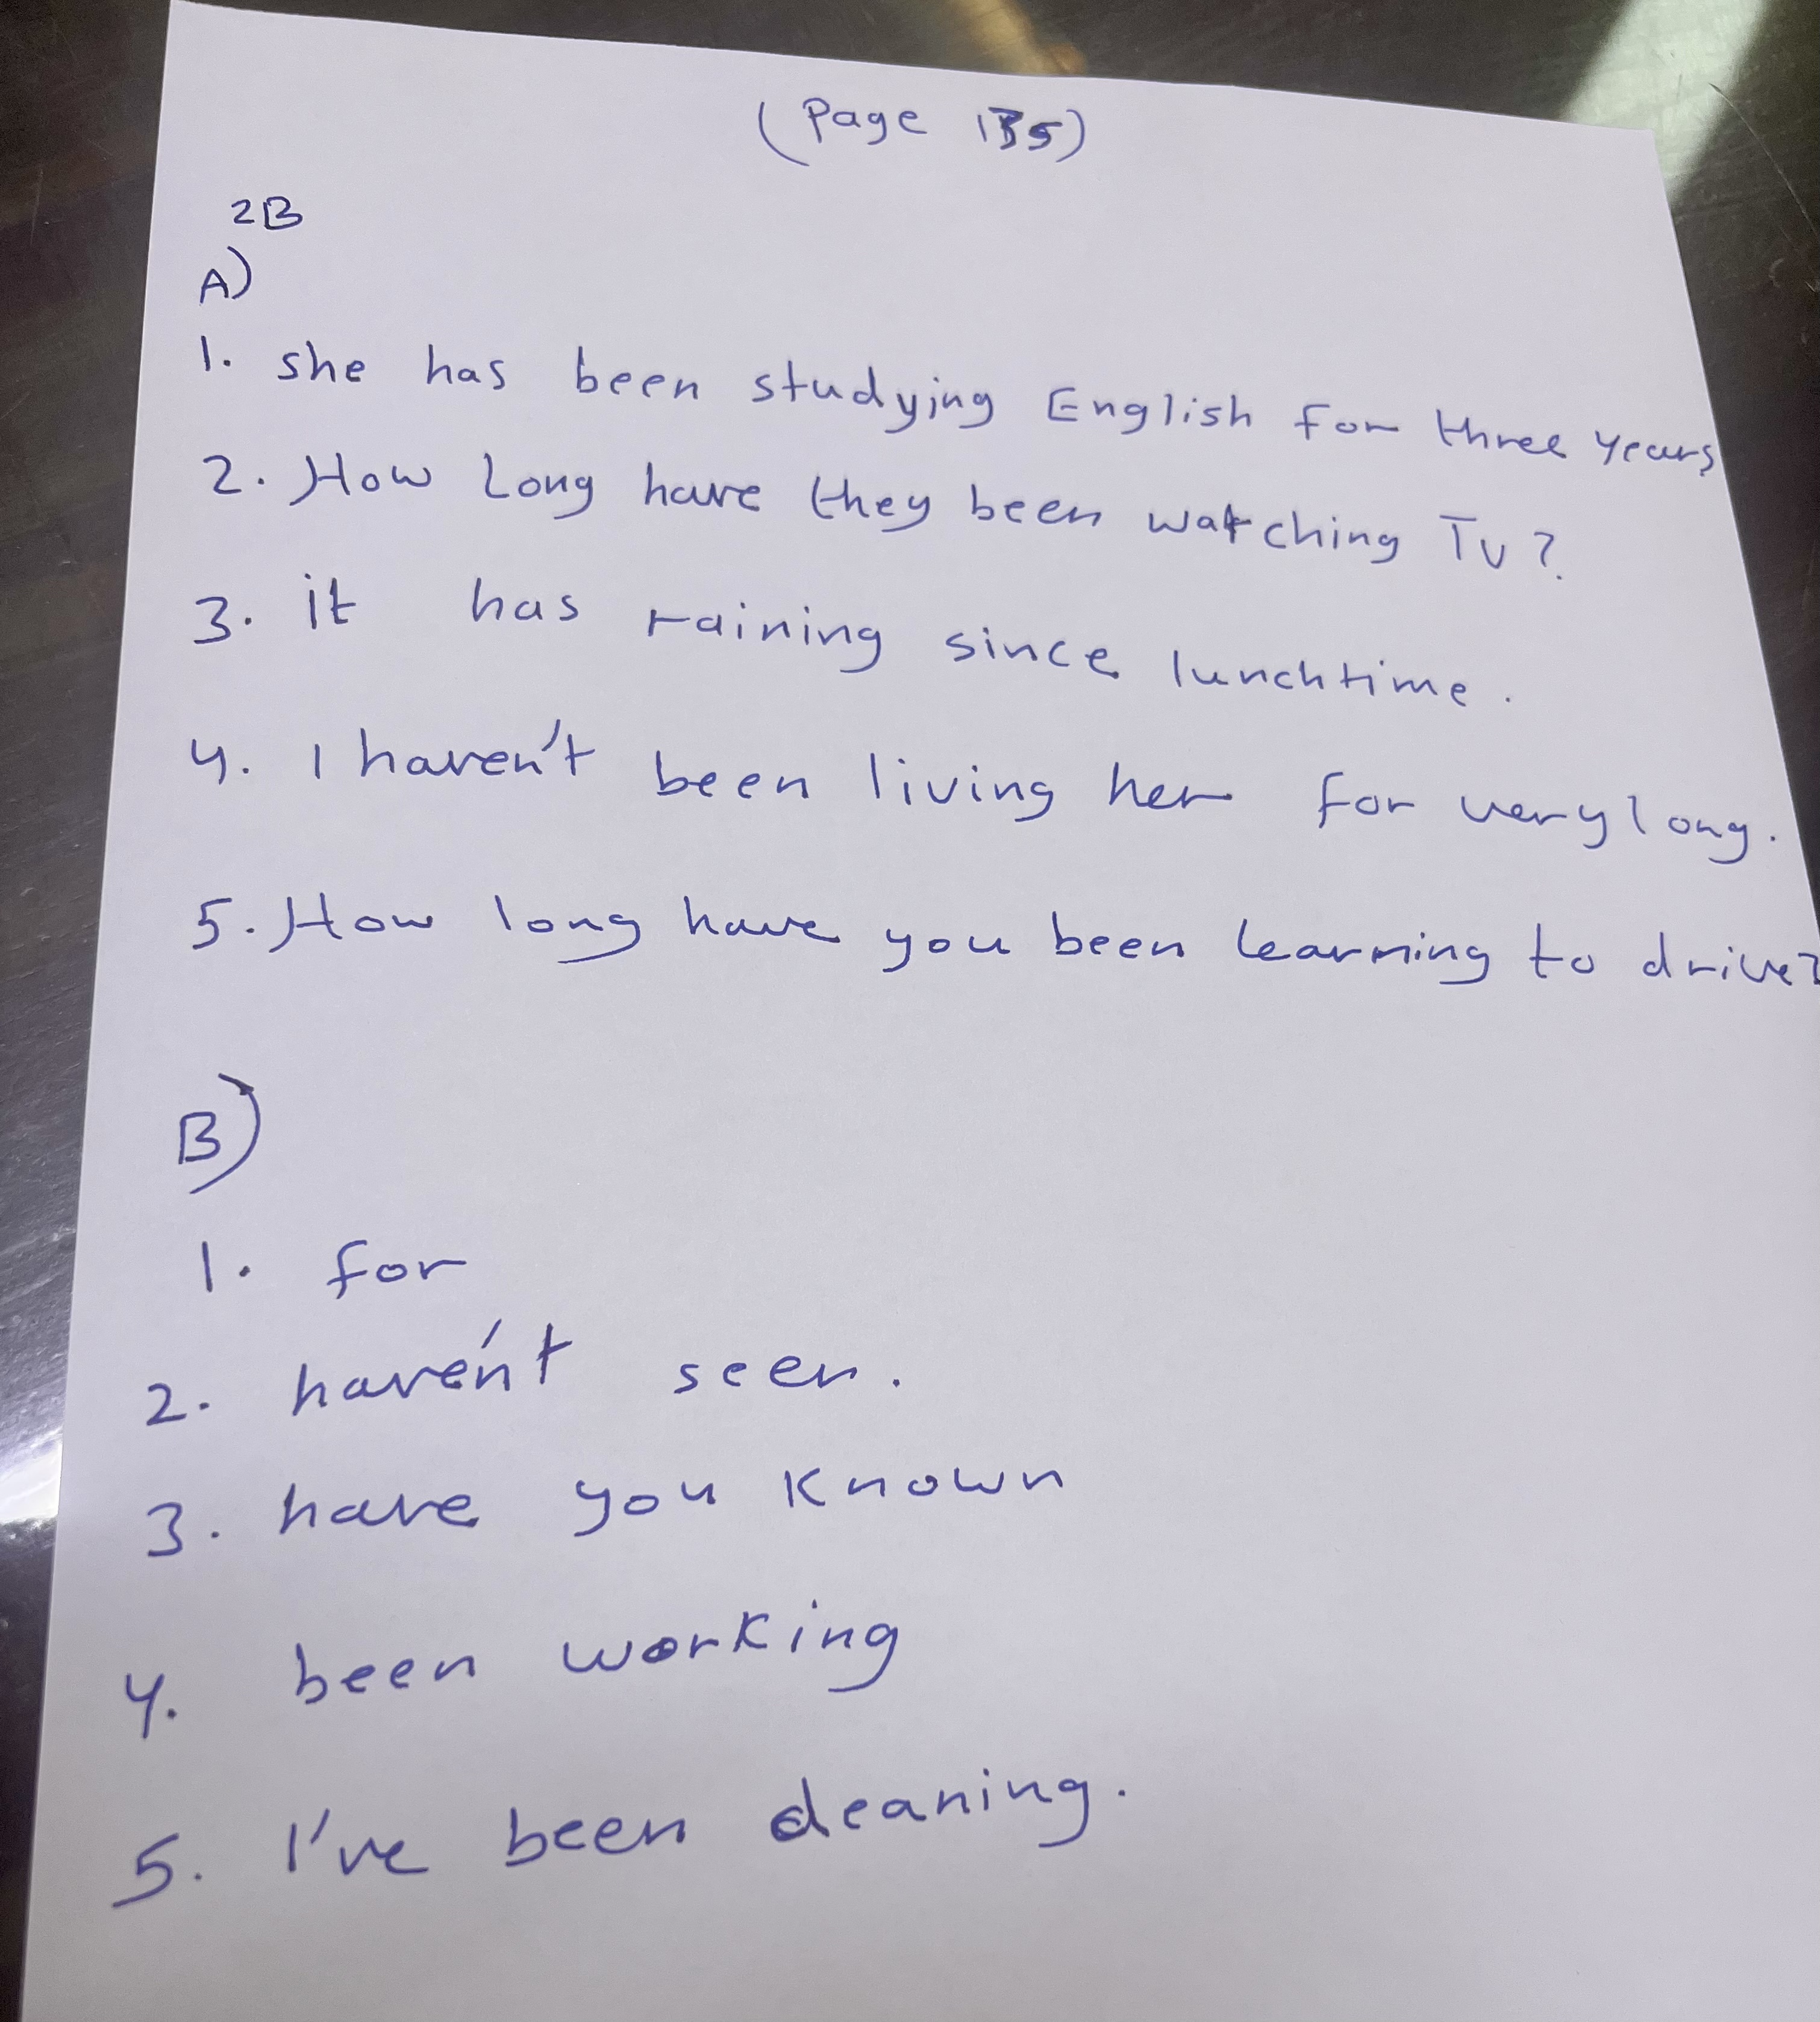 (Page 135)
2B
A)
1. she has been studying English for three years
2. How Long have they been watching TV?
3. it has raining since lunchtime.
4. I haven't been living her for very long.
5. How long have you been learning to drive?
B)
1. for
2. haven't seen.
3. have you known
4. been working
5. I've been cleaning.